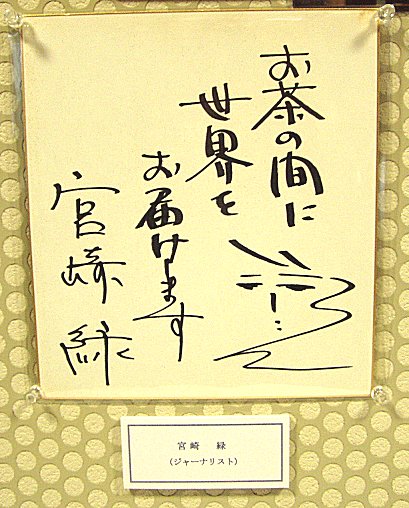 お茶の間に
世界を
お届けます
宮崎緑
宮崎　緑
（ジャーナリスト）